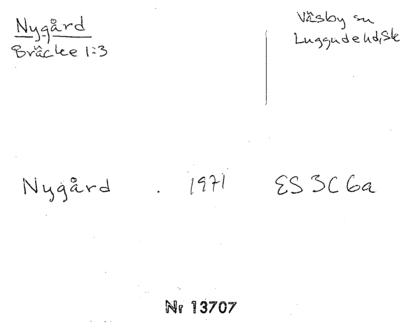 Nygård
Bräcke 1:3
Väsby sn
Luggude hd, Sk
Nygård . 1971 ES 3C6a
Nr 13707